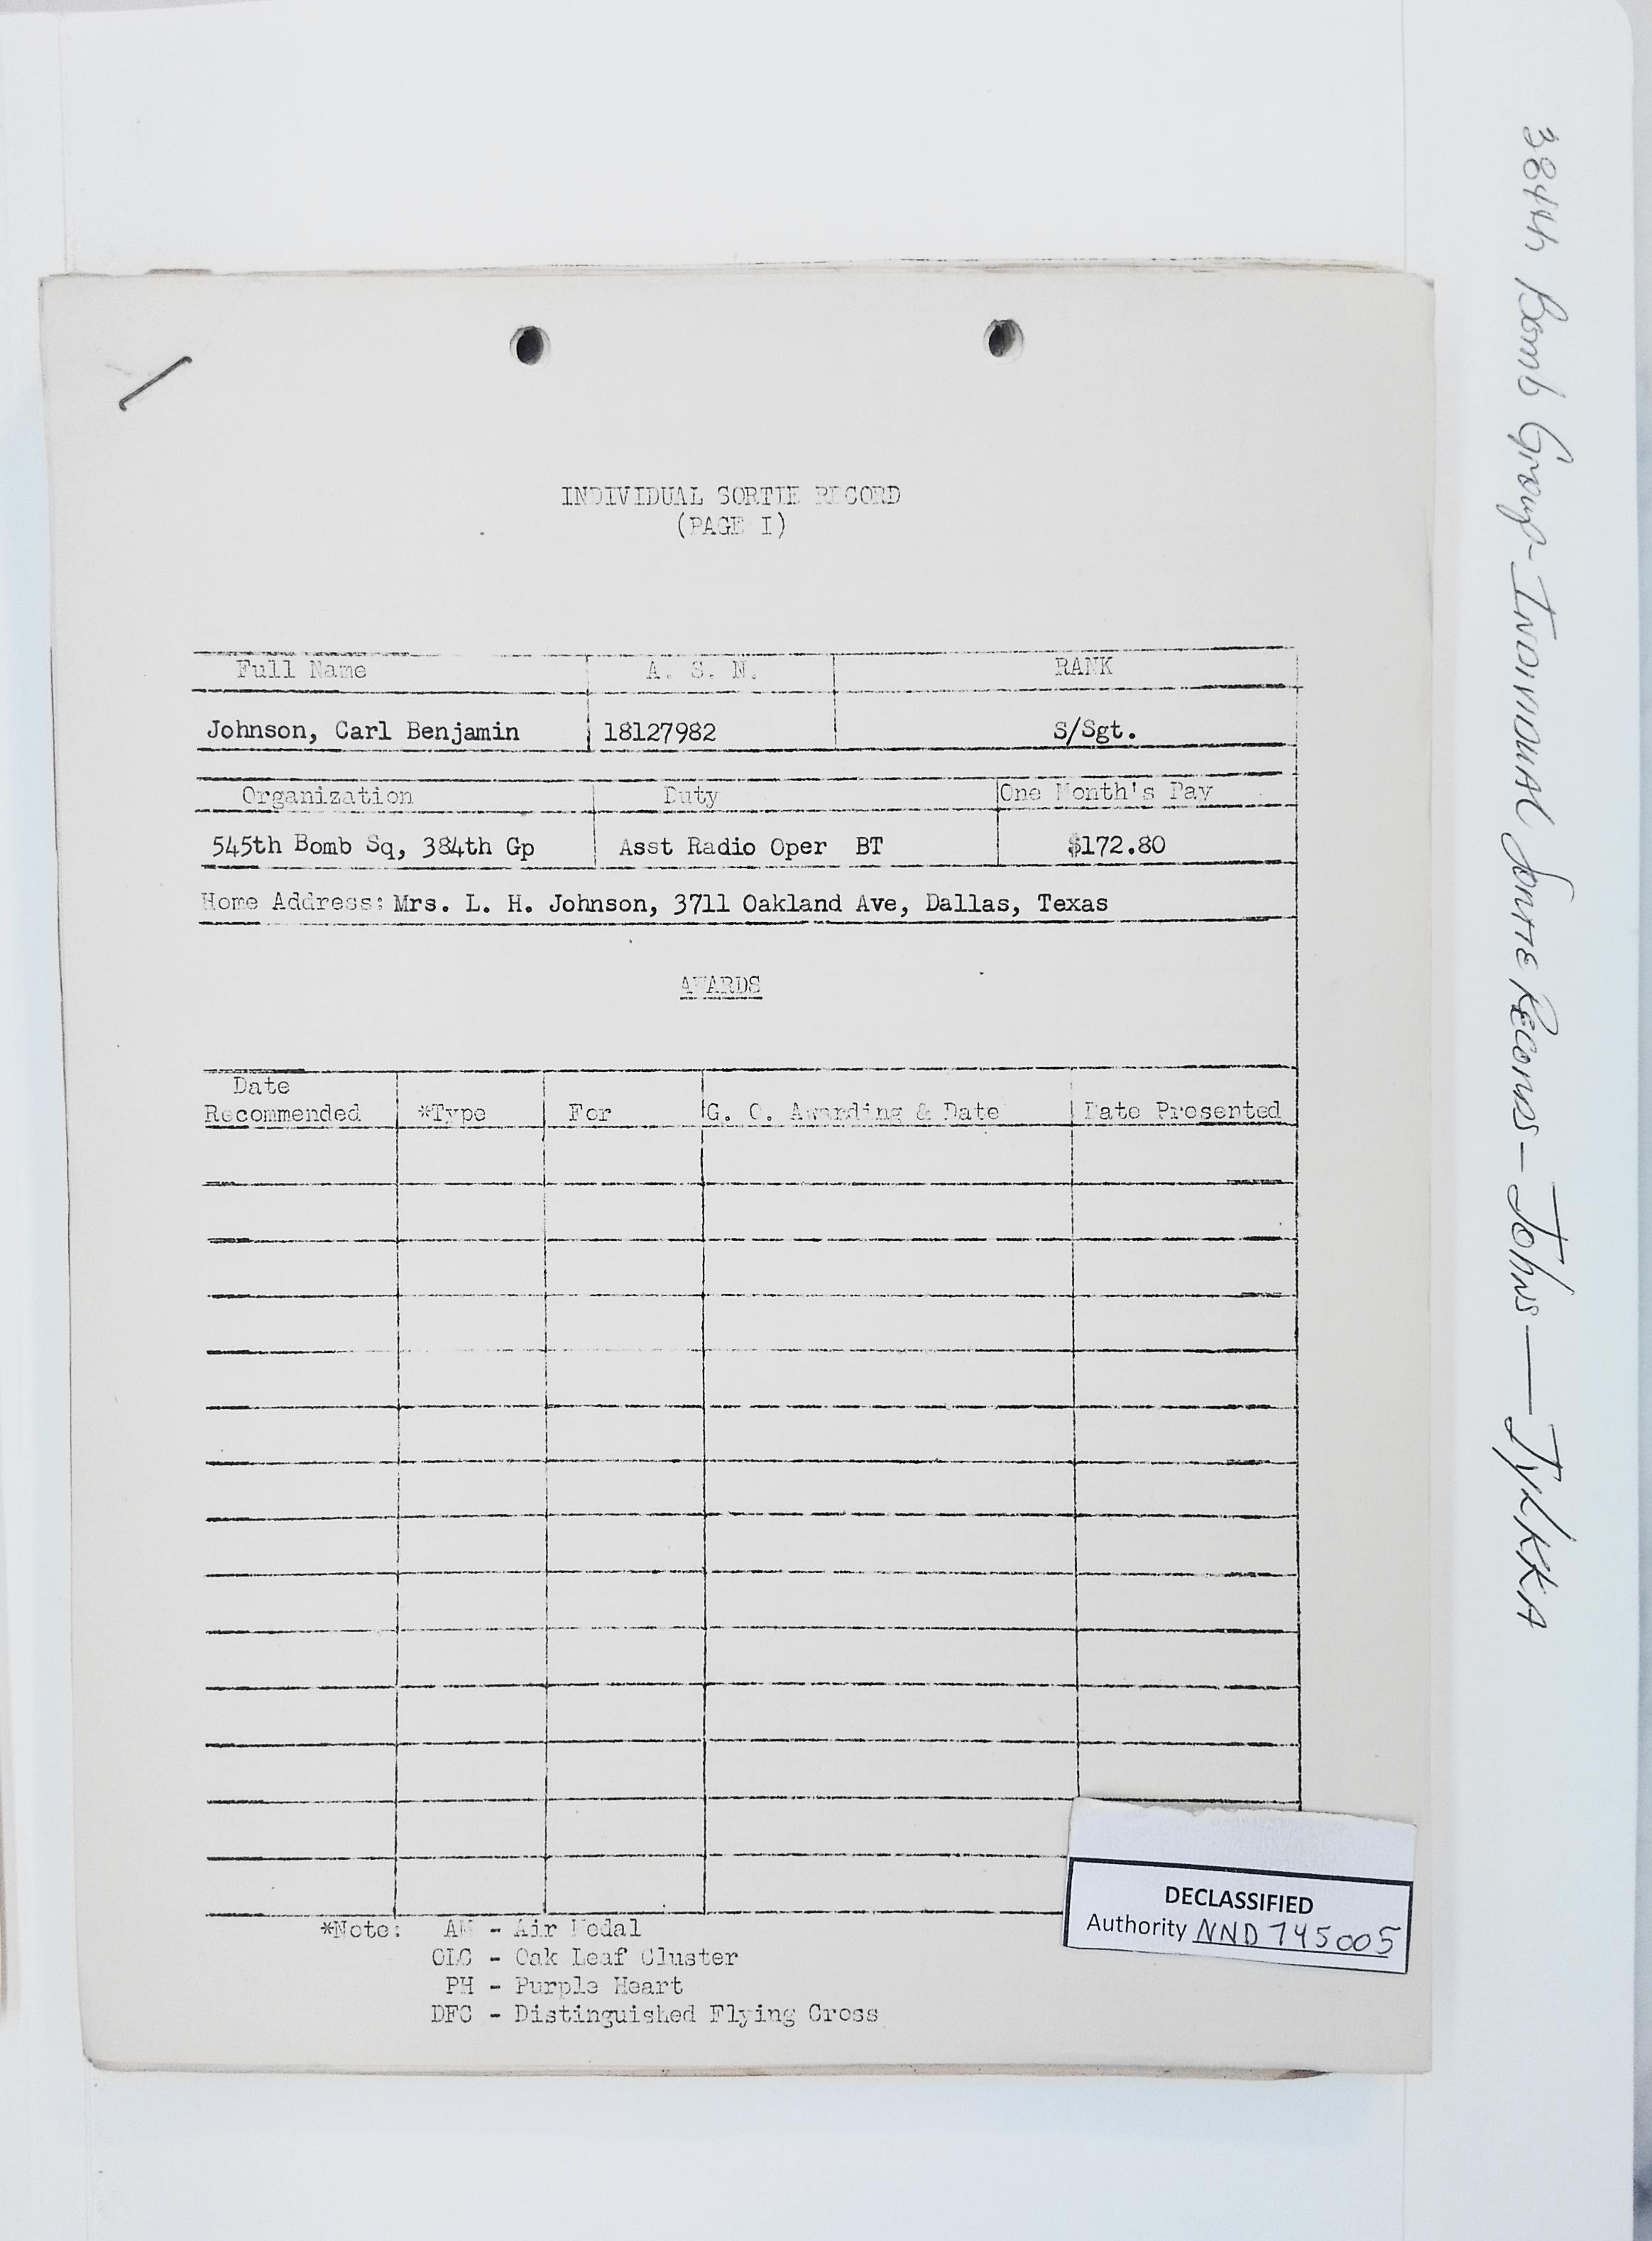 INDIVIDUAL SORTIE RECORD
(PAGE I)
Full Name A. S. N. RANK
Johnson, Carl Benjamin 18127982 S/Sgt.
Organization Duty One Month's Pay
545th Bomb Sq, 384th Gp Asst Radio Oper BT $172.80
Home Address: Mrs. L. H. Johnson, 3711 Oakland Ave, Dallas, Texas
AWARDS
Date
Recommended *Type For G. O. Awarding & Date Date Presented
*Note: AM - Air Medal
OLC - Oak Leaf Cluster
PH - Purple Heart
DFC - Distinguished Flying Cross
DECLASSIFIED
Authority NND 745005
384th Bomb Group - INDIVIDUAL SORTIE RECORDS - JOHNS — JYLKKA